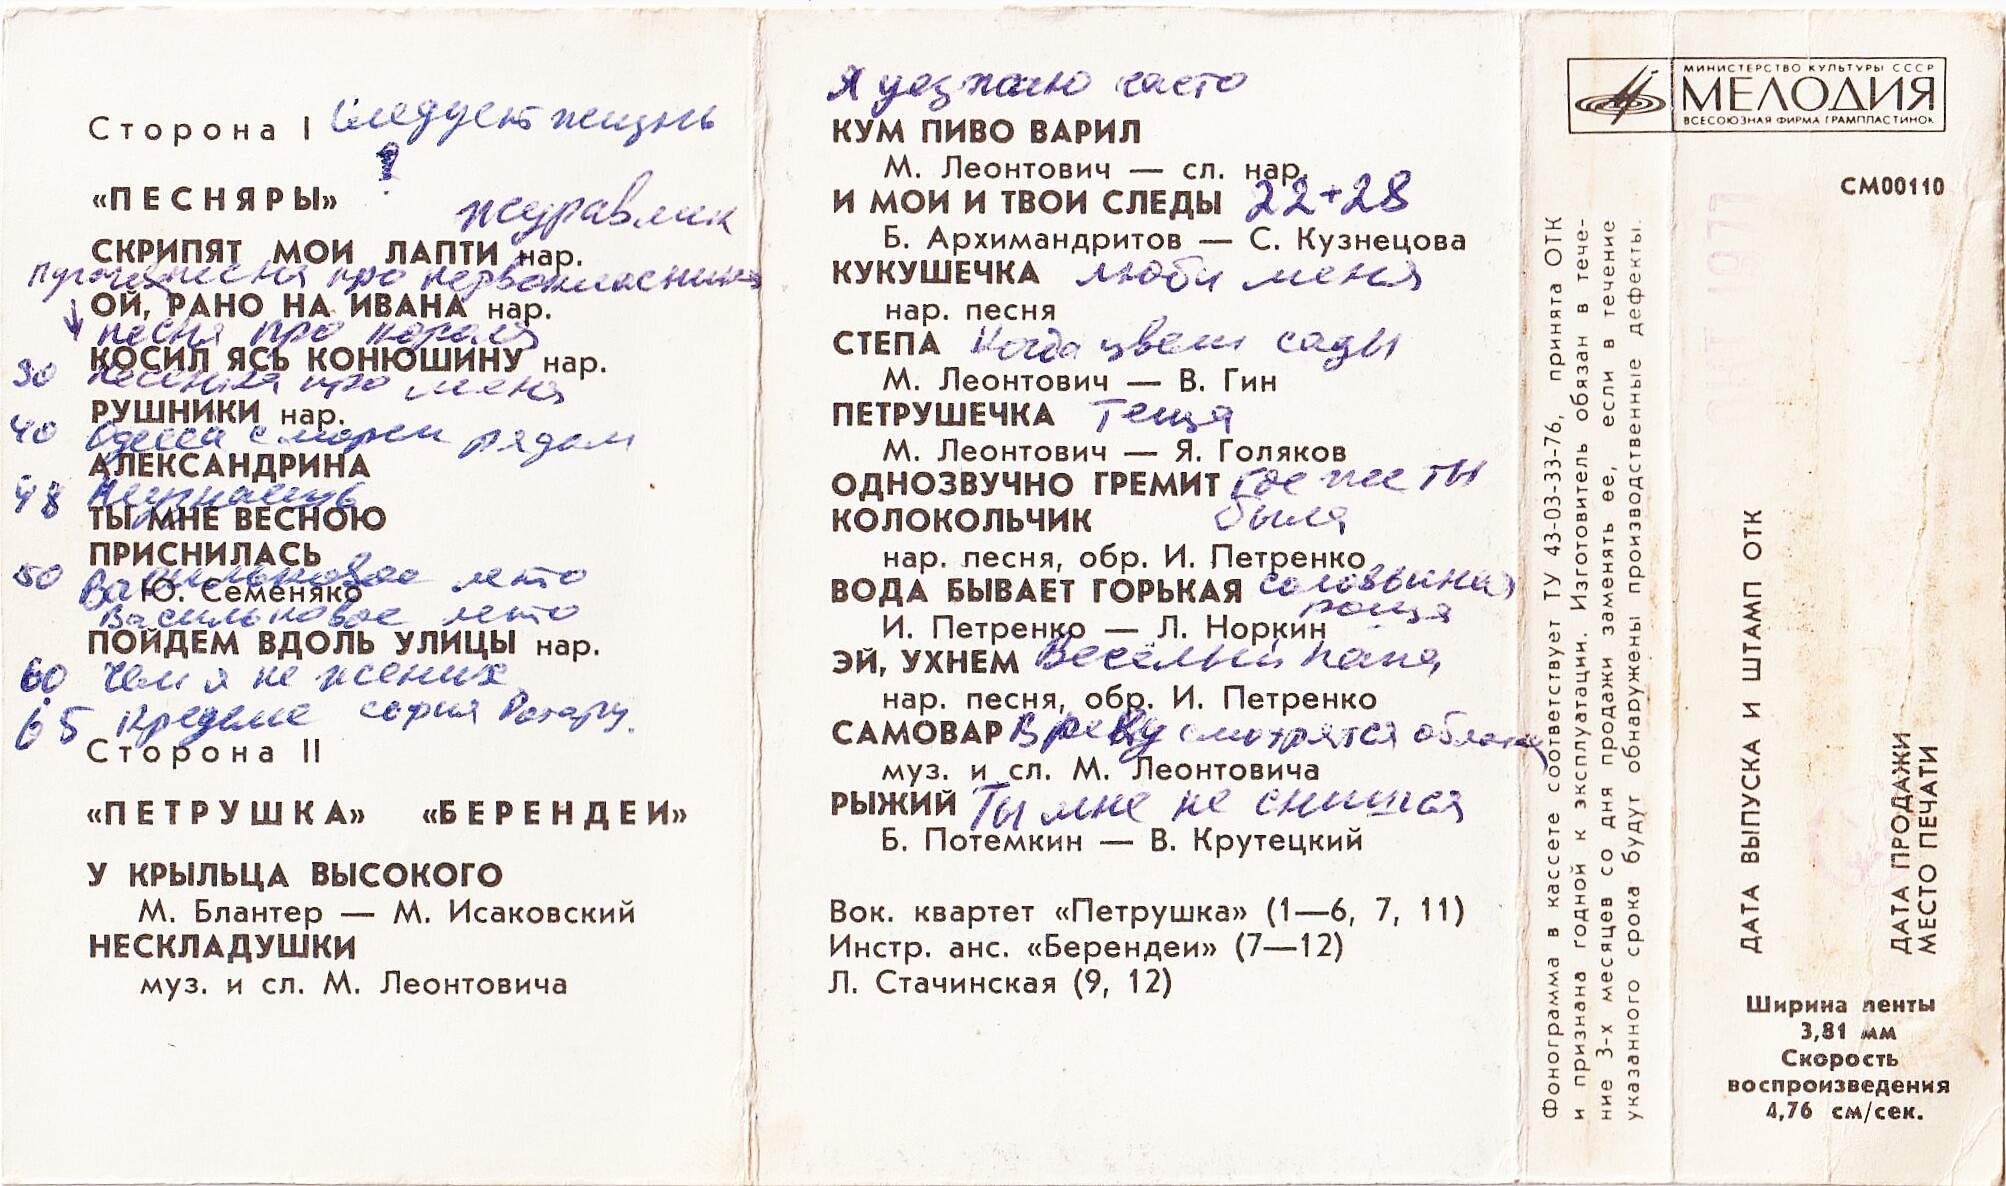 Сторона I
?
«ПЕСНЯРЫ»
журавлик
СКРИПЯТ МОИ ЛАПТИ нар.
песня про первоклассника
ОЙ, РАНО НА ИВАНА нар.
песня про короля
КОСИЛ ЯСЬ КОНЮШИНУ нар.
30 песенка про меня
РУШНИКИ нар.
40 Одесса с морем рядом
АЛЕКСАНДРИНА
48
ТЫ МНЕ ВЕСНОЮ
ПРИСНИЛАСЬ
50 Васильковое лето
Ю. Семеняко
Васильковое лето
ПОЙДЕМ ВДОЛЬ УЛИЦЫ нар.
60 Чем я не жених
65 София Ротару.
Сторона II
«ПЕТРУШКА» «БЕРЕНДЕИ»
У КРЫЛЬЦА ВЫСОКОГО
М. Блантер — М. Исаковский
НЕСКЛАДУШКИ
муз. и сл. М. Леонтовича
Я уезжаю часто
КУМ ПИВО ВАРИЛ
М. Леонтович — сл. нар.
И МОИ И ТВОИ СЛЕДЫ 22+28
Б. Архимандритов — С. Кузнецова
КУКУШЕЧКА люби меня
нар. песня
СТЕПА Когда цвели сады
М. Леонтович — В. Гин
ПЕТРУШЕЧКА Теща
М. Леонтович — Я. Голяков
ОДНОЗВУЧНО ГРЕМИТ Где же ты
КОЛОКОЛЬЧИК была
нар. песня, обр. И. Петренко
ВОДА БЫВАЕТ ГОРЬКАЯ соловьиная
роща
И. Петренко — Л. Норкин
ЭЙ, УХНЕМ Весёлый папа
нар. песня, обр. И. Петренко
САМОВАР В реку смотрятся облака
муз. и сл. М. Леонтовича
РЫЖИЙ Ты мне не снишься
Б. Потемкин — В. Крутецкий
Вок. квартет «Петрушка» (1—6, 7, 11)
Инстр. анс. «Берендеи» (7—12)
Л. Стачинская (9, 12)
Фонограмма в кассете соответствует ТУ 43-03-33-76, принята ОТК
и признана годной к эксплуатации. Изготовитель обязан в тече-
ние 3-х месяцев со дня продажи заменять ее, если в течение
указанного срока будут обнаружены производственные дефекты.
МИНИСТЕРСТВО КУЛЬТУРЫ СССР
МЕЛОДИЯ
ВСЕСОЮЗНАЯ ФИРМА ГРАМПЛАСТИНОК
СМ00110
ОКТ 1977
ДАТА ВЫПУСКА И ШТАМП ОТК
ДАТА ПРОДАЖИ
МЕСТО ПЕЧАТИ
Ширина ленты
3,81 мм
Скорость
воспроизведения
4,76 см/сек.